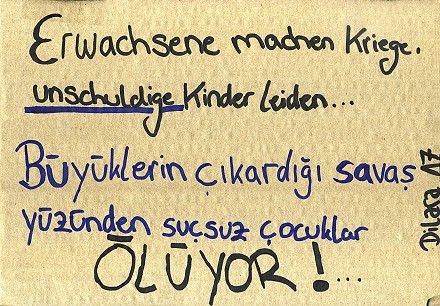 Erwachsene machen Kriege.
unschuldige Kinder leiden...
Büyüklerin çıkardığı savaş
yüzünden suçsuz çocuklar
ÖLÜYOR!...
Dilara 17